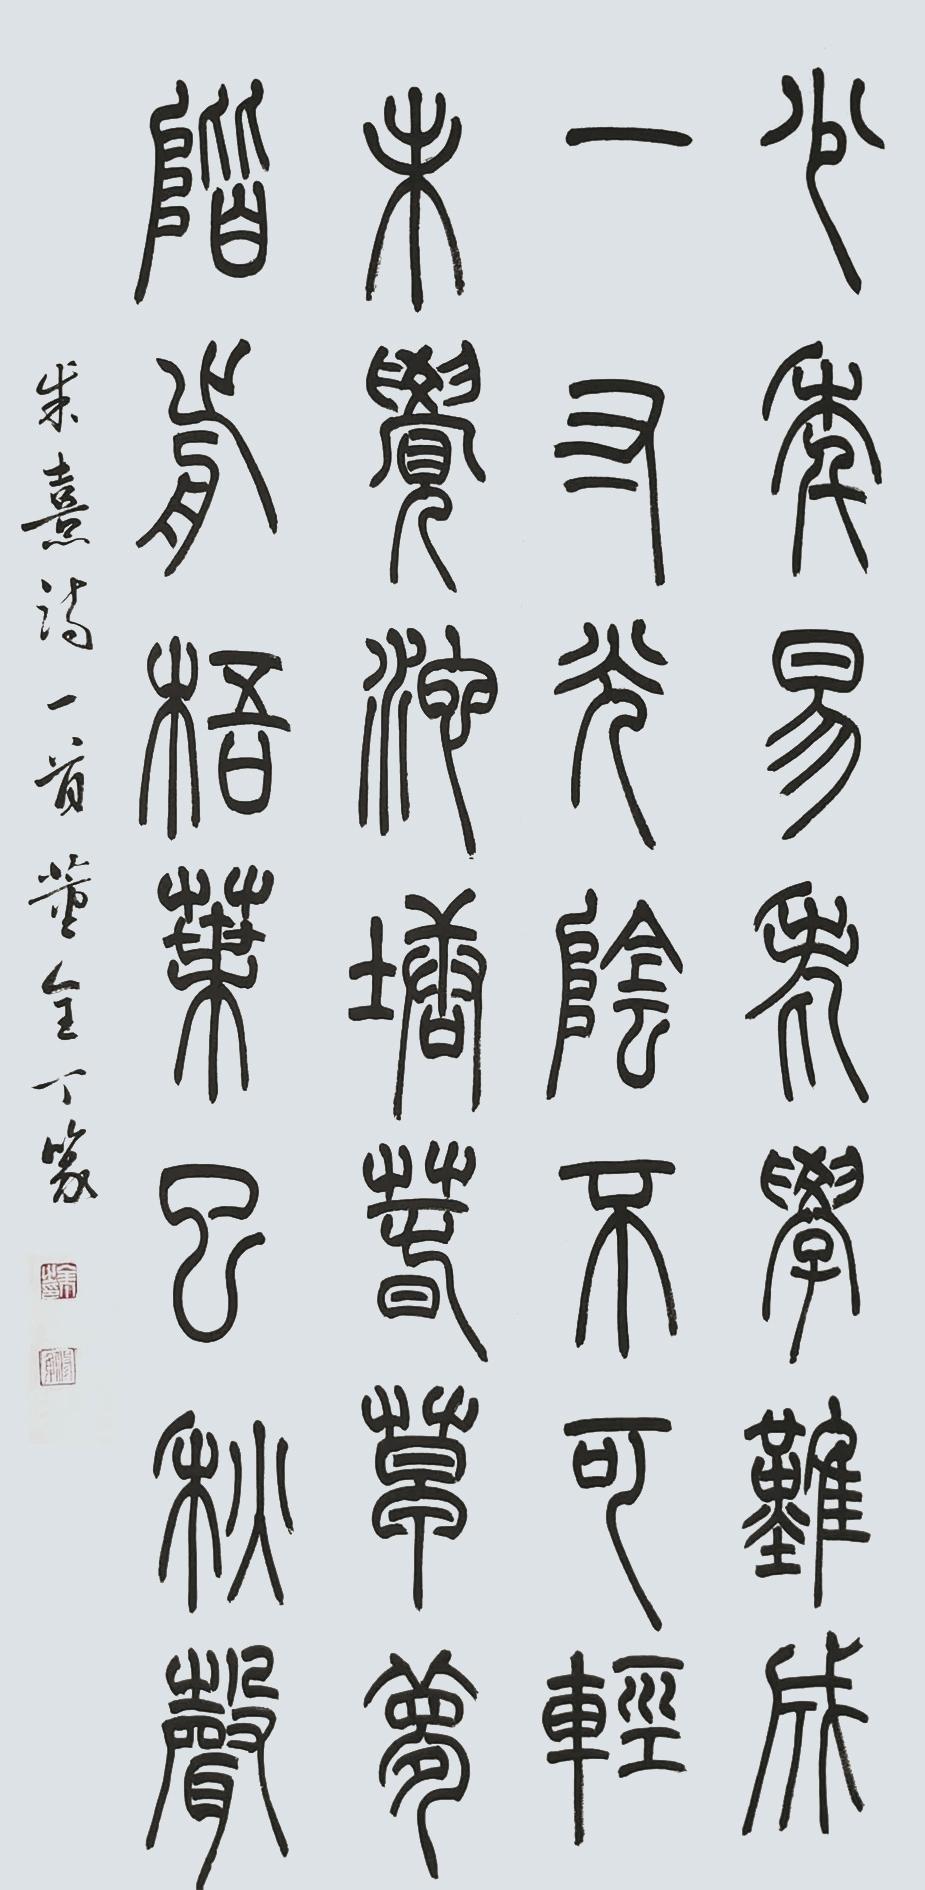 少年易老學難成
一寸光陰不可輕
未覺池塘春草夢
階前梧葉已秋聲
朱熹诗一首董全丁篆